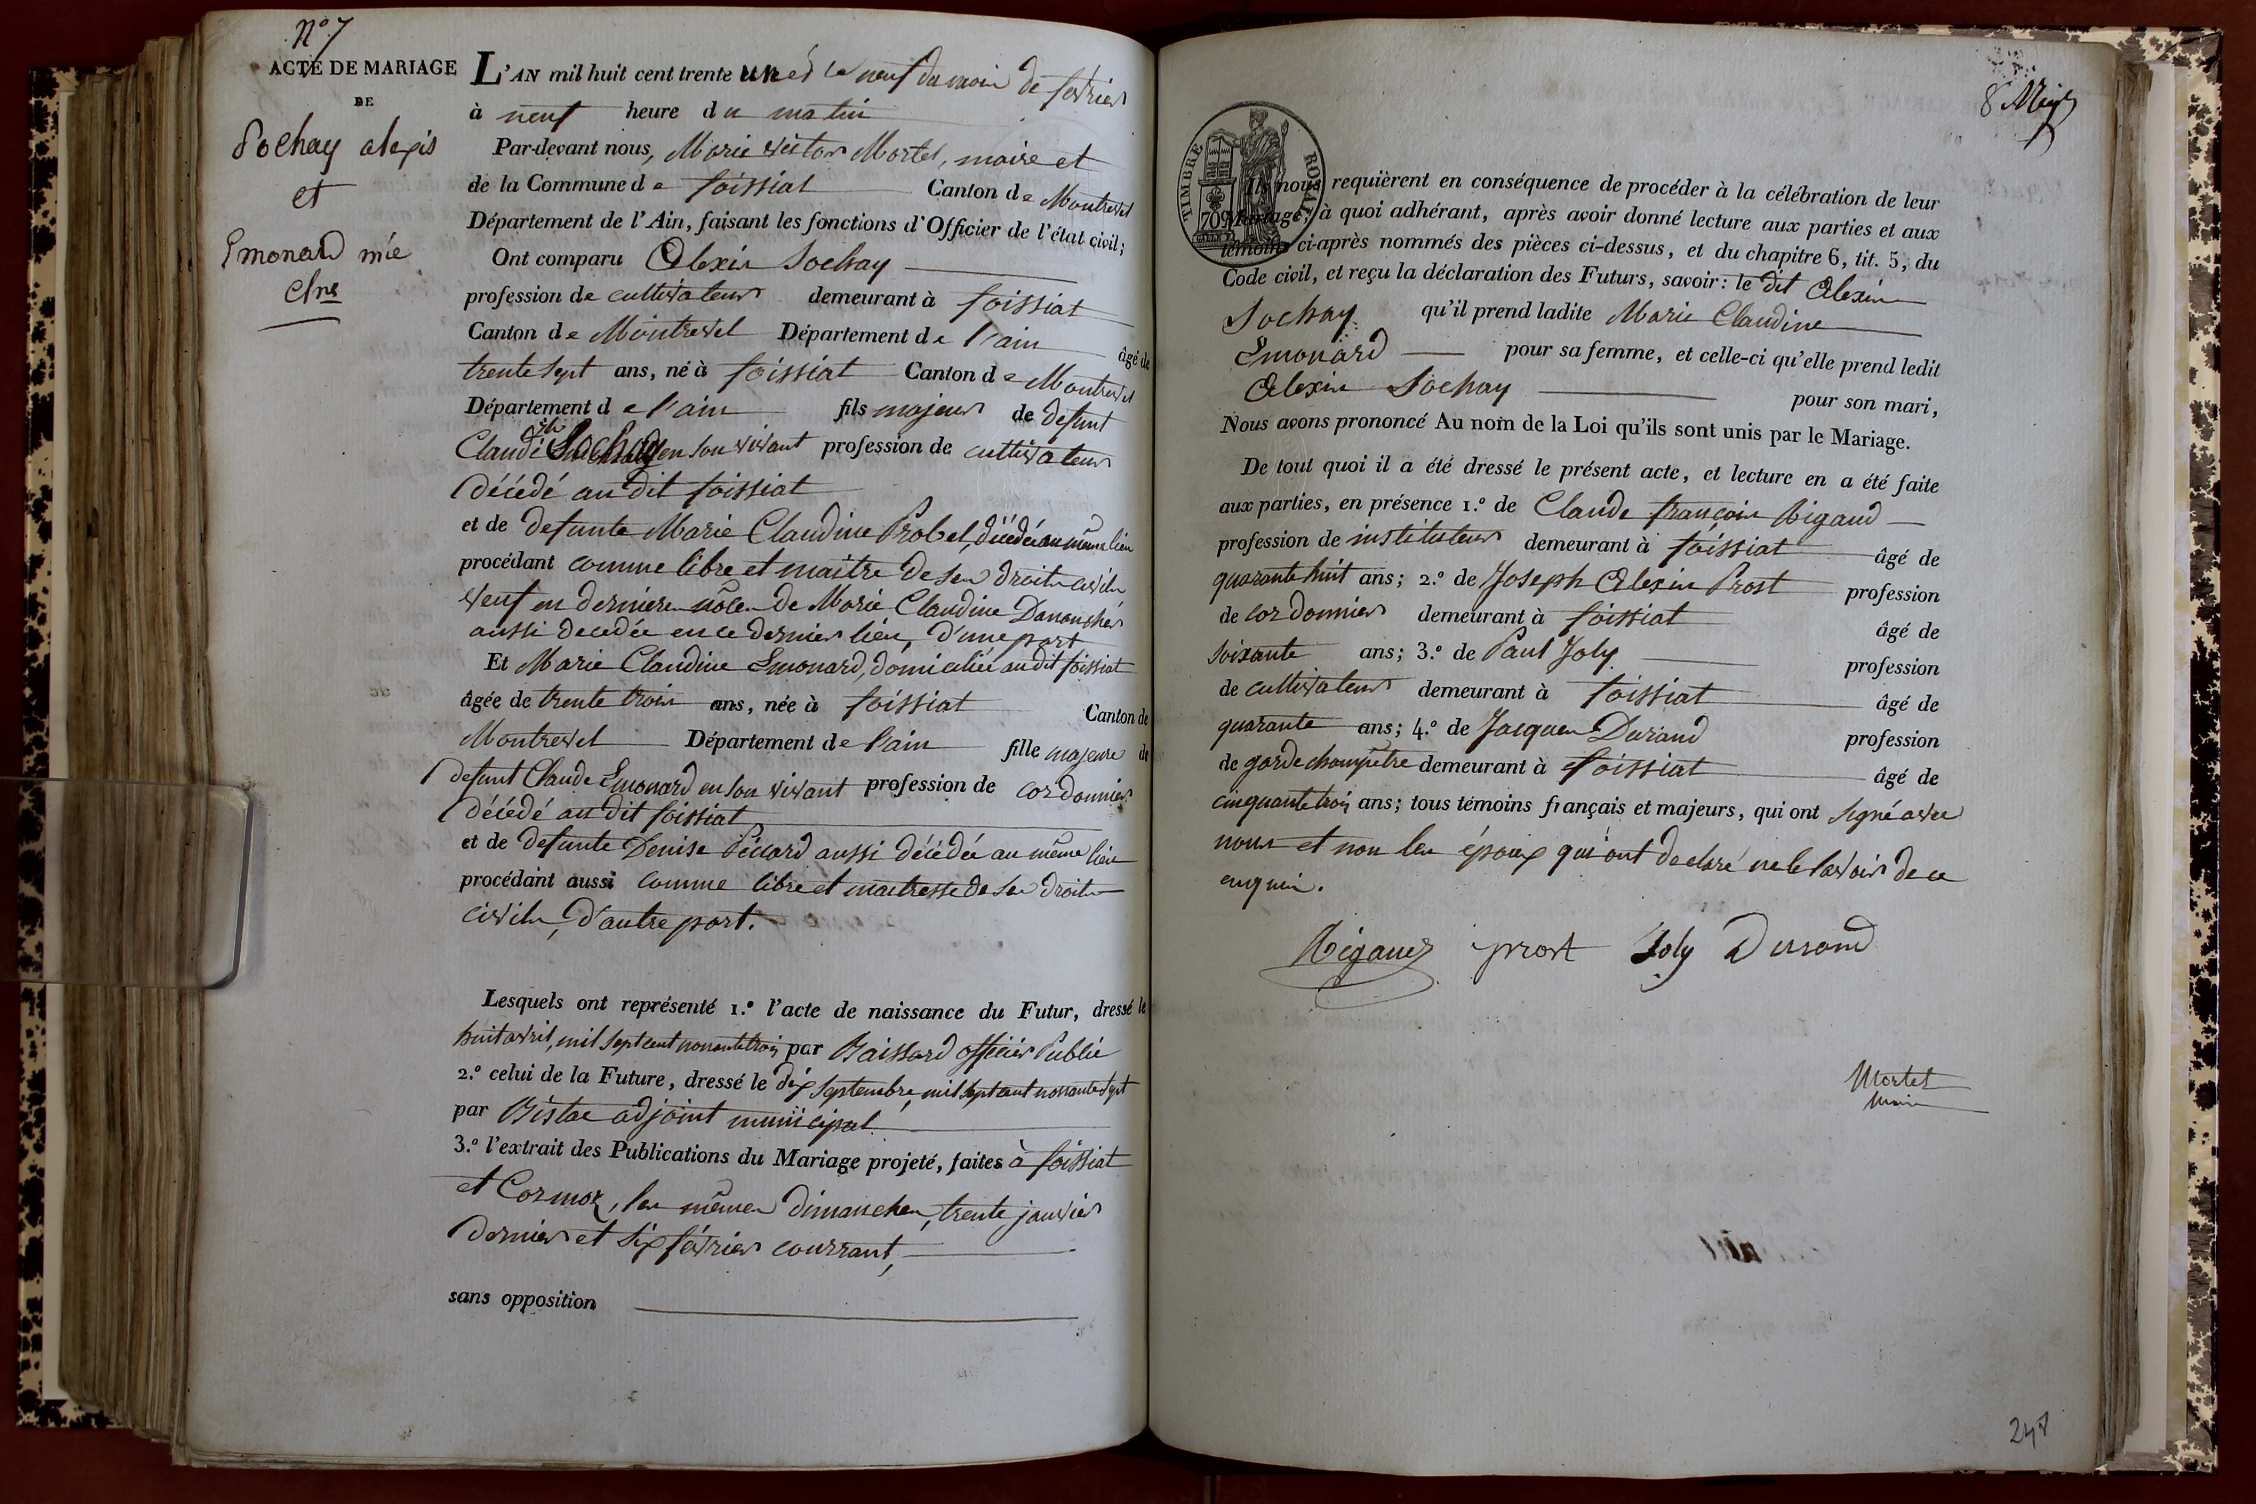 N.o 7
ACTE DE MARIAGE
DE
Sochay alexis
et
Emonard m.ie
Cl.ne
L'AN mil huit cent trente un et le neuf du mois de fevrier
à neuf heure du matin
Par-devant nous, Marie victor Mortel, maire et
de la Commune de foissiat Canton de Montrevel
Département de l'Ain, faisant les fonctions d'Officier de l'état civil;
Ont comparu Alexis Sochay
profession de cultivateur demeurant à foissiat
Canton de Montrevel Département de l'ain âgé de
trente sept ans, né à foissiat Canton de Montrevel
Département de l'ain fils majeur de defunt
Claude Sochay en son vivant profession de cultivateur
décédé au dit foissiat
et de defunte Marie Claudine Probel, décédée au même lieu
procédant comme libre et maitre de ses droits civils
veuf en derniere noces de Marie Claudine
aussi decedée en ce dernier lieu, d'une part
Et Marie Claudine Emonard, domiciliée au dit foissiat
âgée de trente trois ans, née à foissiat Canton de
Montrevel Département de l'ain fille majeure de
defunt Claude Emonard en son vivant profession de cordonnier
décédé au dit foissiat
et de defunte Denise Pécuard aussi décédée au même lieu
procédant aussi comme libre et maitresse de ses droits
civils, d'autre part.
Lesquels ont représenté 1.o l'acte de naissance du Futur, dressé le
huit avril, mil sept cent nonante trois par Baissard officier Public
2.o celui de la Future, dressé le dix septembre, mil sept cent nonante sept
par Bistac adjoint municipal
3.o l'extrait des Publications du Mariage projeté, faites à foissiat
et Cormoz, les mêmes dimanches, trente janvier
dernier et six février courrant,
sans opposition
8 
TIMBRE ROYAL
70
Ils nous requièrent en conséquence de procéder à la célébration de leur
Mariage; à quoi adhérant, après avoir donné lecture aux parties et aux
témoins ci-après nommés des pièces ci-dessus, et du chapitre 6, tit. 5, du
Code civil, et reçu la déclaration des Futurs, savoir: le dit Alexis
Sochay qu'il prend ladite Marie Claudine
Emonard pour sa femme, et celle-ci qu'elle prend ledit
Alexis Sochay pour son mari,
Nous avons prononcé Au nom de la Loi qu'ils sont unis par le Mariage.
De tout quoi il a été dressé le présent acte, et lecture en a été faite
aux parties, en présence 1.o de Claude françois Rigaud
profession de instituteur demeurant à foissiat âgé de
quarante huit ans; 2.o de Joseph Alexis Prost profession
de cordonnier demeurant à foissiat âgé de
soixante ans; 3.o de Paul Joly profession
de cultivateur demeurant à foissiat âgé de
quarante ans; 4.o de Jacques Durand profession
de garde champêtre demeurant à foissiat âgé de
cinquante trois ans; tous témoins français et majeurs, qui ont signé avec
nous et non les époux qui ont declaré ne le savoir de ce
enquis.
Rigaud prost Joly Durand
Mortel
Maire
248